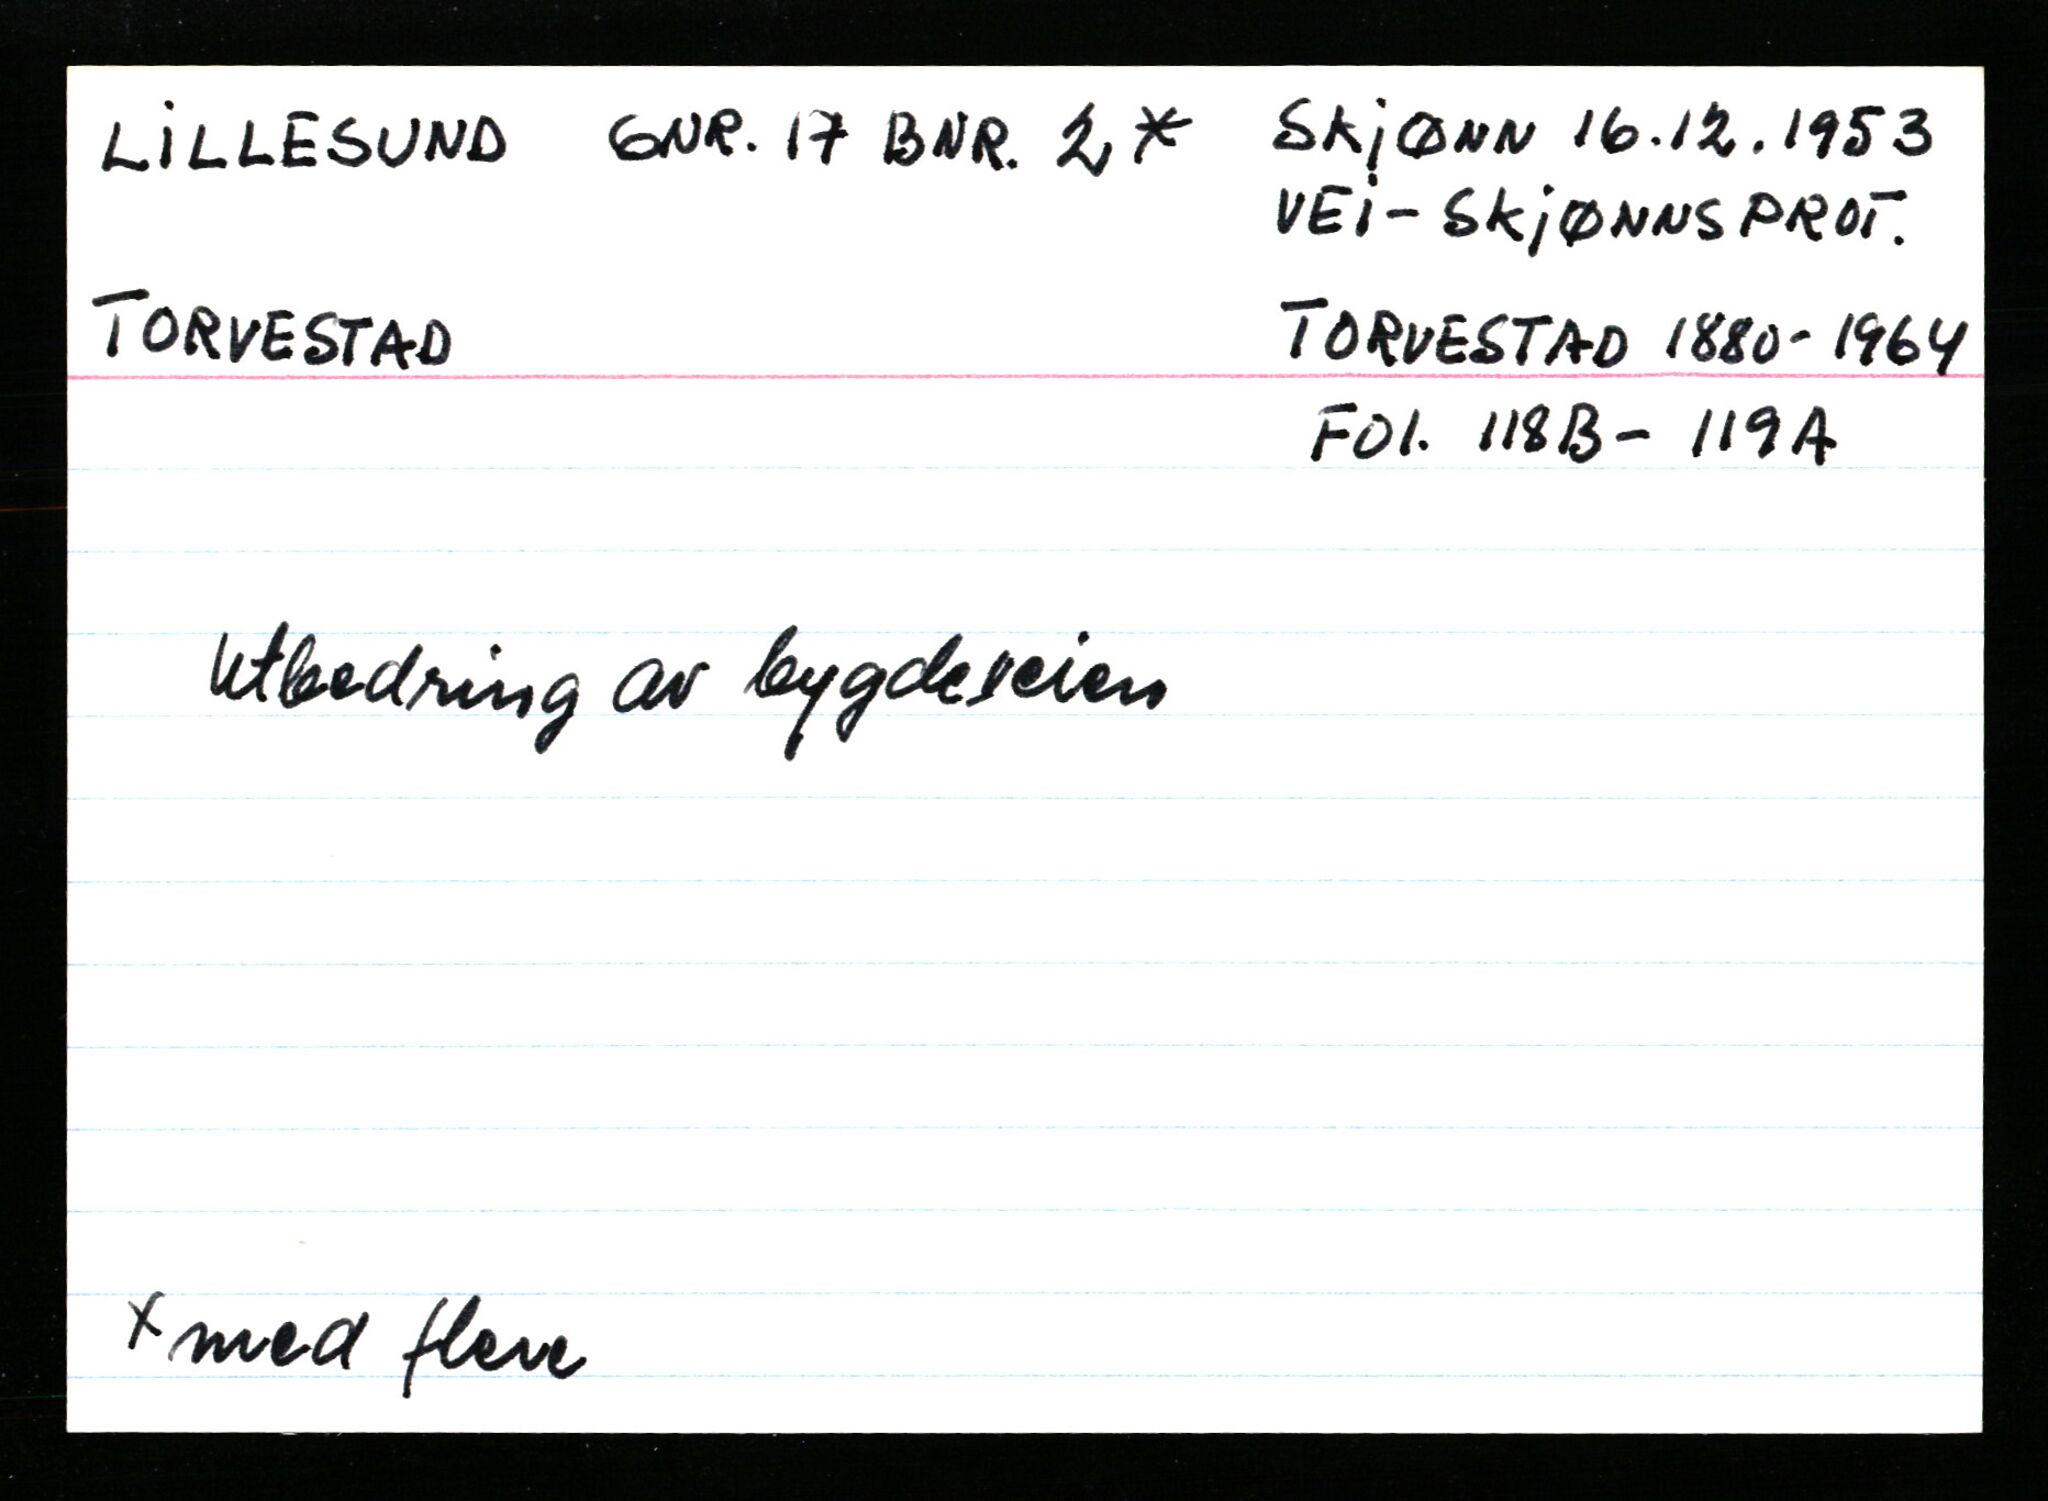 LILLESUND GNR. 17 BNR. 2 * SKJØNN 16.12.1953
VEI-SKJØNNSPROT.
TORVESTAD TORVESTAD 1880-1964
FOL. 118B - 119A
Utbedring av bygdeveien
x med flere